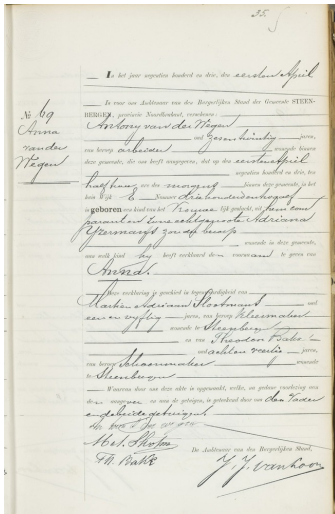 35.
In het jaar negentien honderd en drie, den eersten April
is voor ons Ambtenaar van den Burgerlijken Stand der Gemeente STEEN-
BERGEN, provincie Noordbrabant, verschenen:
Antony van der Wegen
oud zes en twintig jaren,
van beroep arbeider woonende binnen
deze gemeente, die ons heeft aangegeven, dat op den eersten April
negentien honderd en drie, ten
half een ure des morgens binnen deze gemeente, in het
huis wijk E
is geboren een kind van het Vrouwelijk geslacht, uit hem com-
parant en zijne echtgenoote Adriana
IJzermans zonder beroep
woonende in deze gemeente,
aan welk kind hij heeft verklaard de voornaam te geven van
Anna.
Deze verklaring is geschied in tegenwoordigheid van
Martien Adriaan Slootmans oud
een en vijftig jaren, van beroep kleermaker
woonende te Steenbergen
en van Theodoor Bakx
oud acht en veertig jaren,
van beroep Schoenmaker woonende
te Steenbergen
Waarvan door ons deze akte is opgemaakt, welke, na gedane voorlezing aan
den aangever en aan de getuigen, is geteekend door den Vader
en de beide getuigen
De Ambtenaar van den Burgerlijken Stand,
Th. Bakx
J. J. van Loon
№ 69
Anna
van der
Wegen